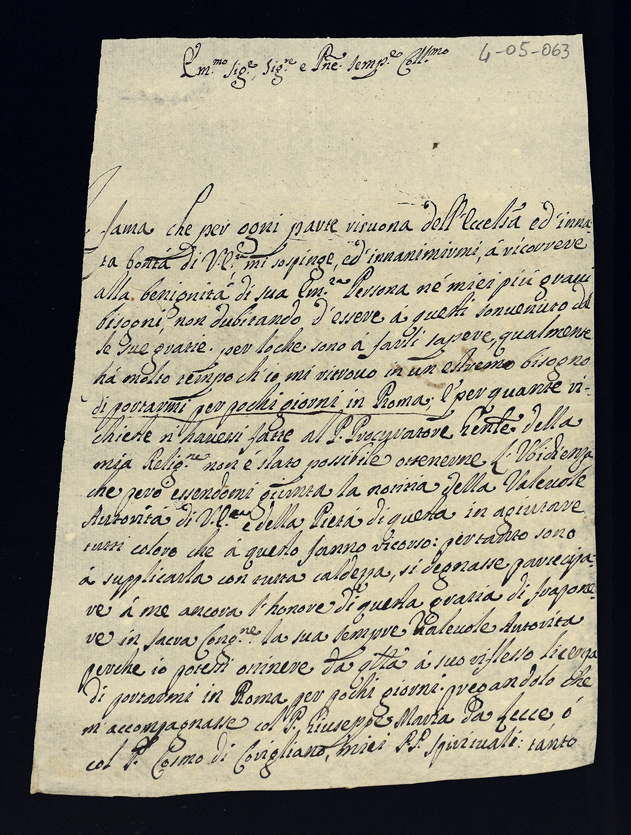 4-05-063
Em.mo Sig.e, Sig.re e Pne. Semp.e Coll.mo
fama che per ogni parte risuona dell'Eccelsa ed'inna-
ta bontá di VE.za mi sospinge, ed'innanimirmi, á ricorrere
alla benignitá di sua Em.za Persona né miei piú gravi
bisogni, non dubitando d'essere a questi sonvenuto dal
le sue gratie. per loche sono a farli sapere, qualmente
há molto tempo ch'io, mi ritrovo in un estremo bisogno
di portarmi per pochi giorni in Roma; e per quante ri-
chieste n'haveri fatte al P. Procuratore Gen.le della
mia Relig.ne non é stato possibile ottenerne l'Ubidienza
che peró essendomi giunta la notitia della Valevole
Autoritá di VE.za e della Pietá di questa in agiutare
tutti coloro che á questo fanno ricorso: pertanto sono
á supplicarla con tutta caldezza, si degnasse partecipa-
re á me ancora l'honore di questa gratia di frapone-
re in sacra Cong.ne la sua sempre Valevole Autorita
perche io potessi ottinere da qsta á suo riflesso licenza
di portarmi in Roma per pochi giorni. pregandolo che
m'accompagnasse col P. Giuseppe Maria da Lecce, ó
col P. Cosmo di Corigliano, miei P.P. spirituali: tanto